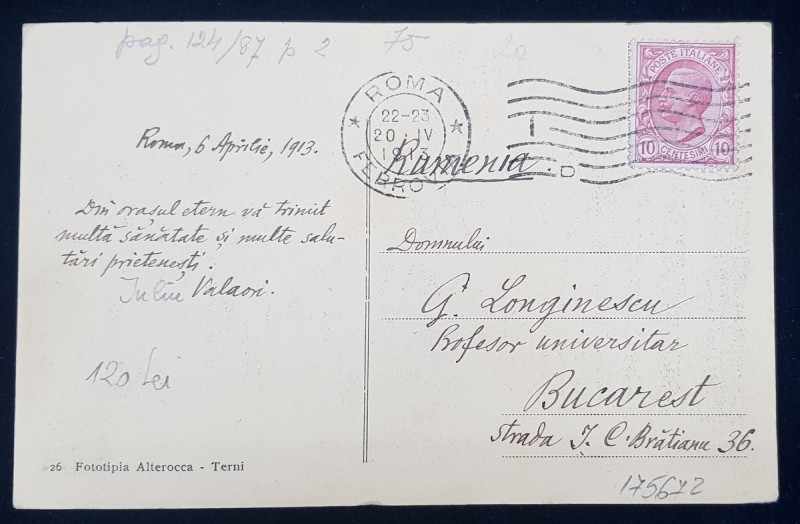 pag. 124/87 p 2 75 20
ROMA
22-23
20 · IV
1913
FERROVIA
POSTE ITALIANE
10 CENTESIMI 10
Roma, 6 Aprilie, 1913.
Din orașul etern vă trimit
multă sănătate și multe salu-
tări prietenești.
Iuliu Valaori.
120 Lei
26 Fototipia Alterocca - Terni
Rumenia.
D
Domnului
G. Longinescu
Profesor universitar
Bucarest
Strada I. C. Brătianu 36.
175672